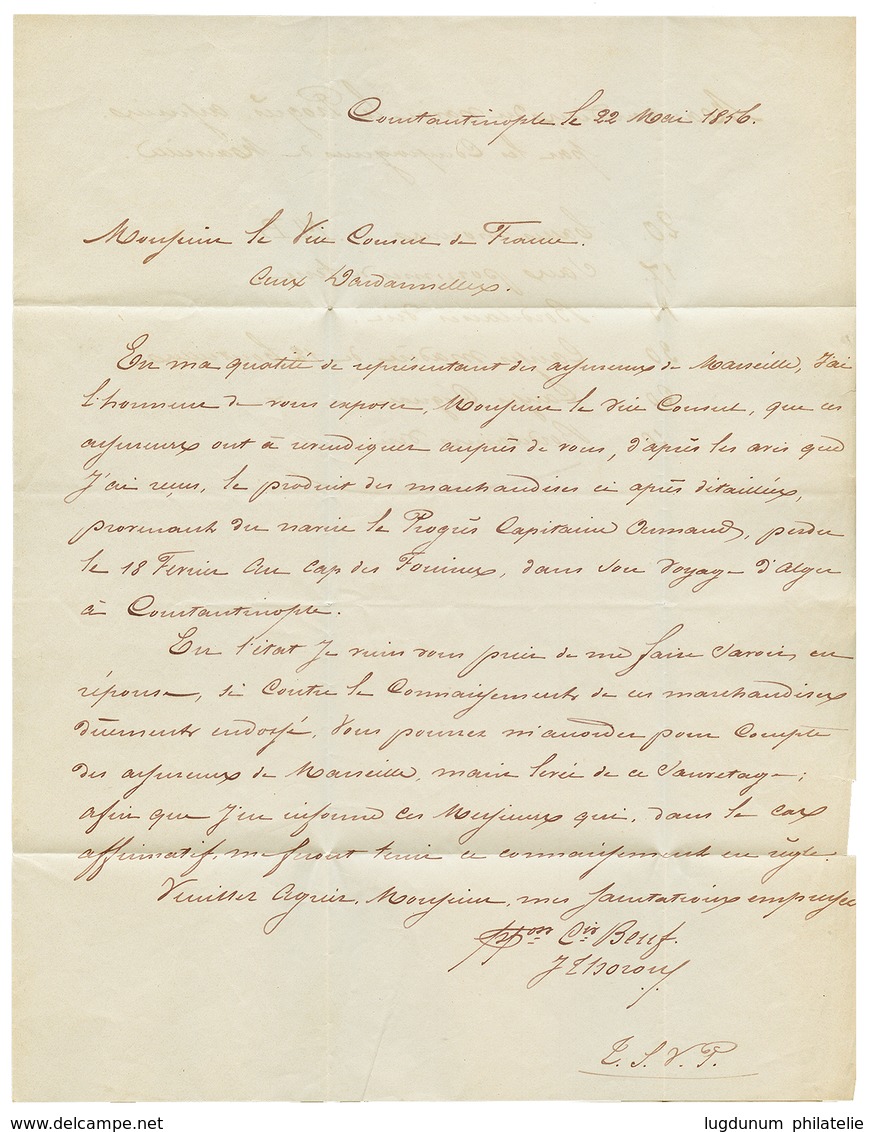 Constantinople le 22 Mai 1856.
Monsieur le Vice Consul de France.
aux Dardannelles.
En ma qualité de représentant des assureurs de Marseille, J'ai
l'honneur de vous exposer, Monsieur le Vice Consul, que ces
assureurs ont à revendiquer auprès de vous, d'après les avis que
J'ai reçus, le produit des marchandises ci après détaillées,
provenant du navire le Progrès Capitaine Armand, perdu
le 18 Fevrier au cap des Fourmes, dans son voyage d'Alger
à Constantinople.
En l'état Je viens vous prier de me faire savoir, en
réponse, si contre le Connaissement de ces marchandises
dûement endossé, Vous pourrez m'accorder pour Compte
des assureurs de Marseille, main levée de ce Sauvetage;
afin que J'en informe ces Messieurs qui, dans le cas
affirmatif, me feront tenir ce connaissement en règle.
Veuillez Agréer, Monsieur, mes salutations empressées
Cir Beuf.
T. S. V. P.
www.delcampe.net
lugdunum philatelie